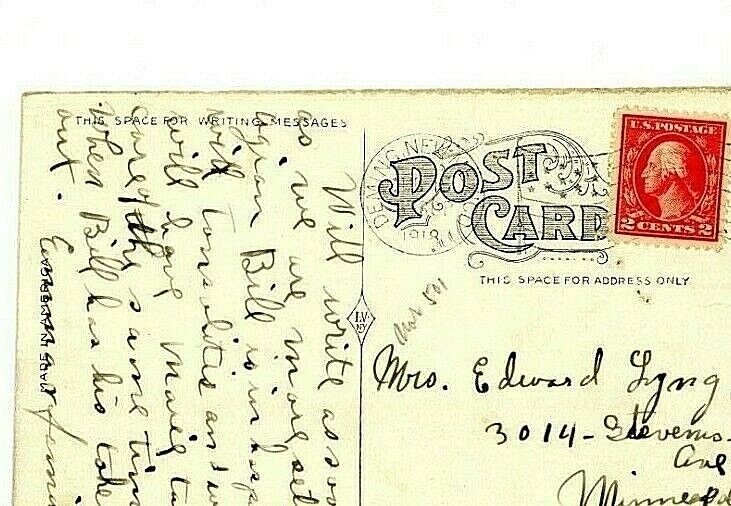 THIS SPACE FOR WRITING MESSAGES
Will write as soo
as we are more set
Bill is in hosp
will tonsolitis and w
will have Marie ta
care of the same tim
When Bill has his take
out.
MADE IN
DEMING NEW
1918
POST
CARD
U.S. POSTAGE
2 CENTS 2
THIS SPACE FOR ADDRESS ONLY
I.V.
NY
Mrs. Edward Lyng
3014 - Stevens
Ave
Minneap